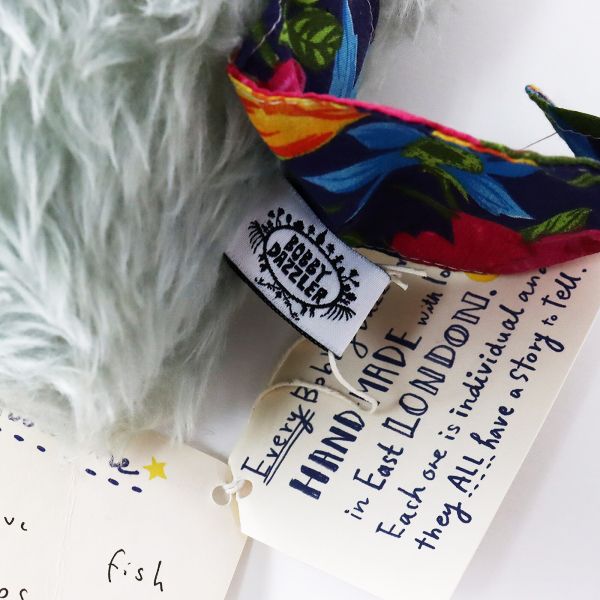 BOBBY
DAZZLER
Every Bobby
HAND MADE with
in East LONDON.
Each one is individual and
they ALL have a story to tell.
fish